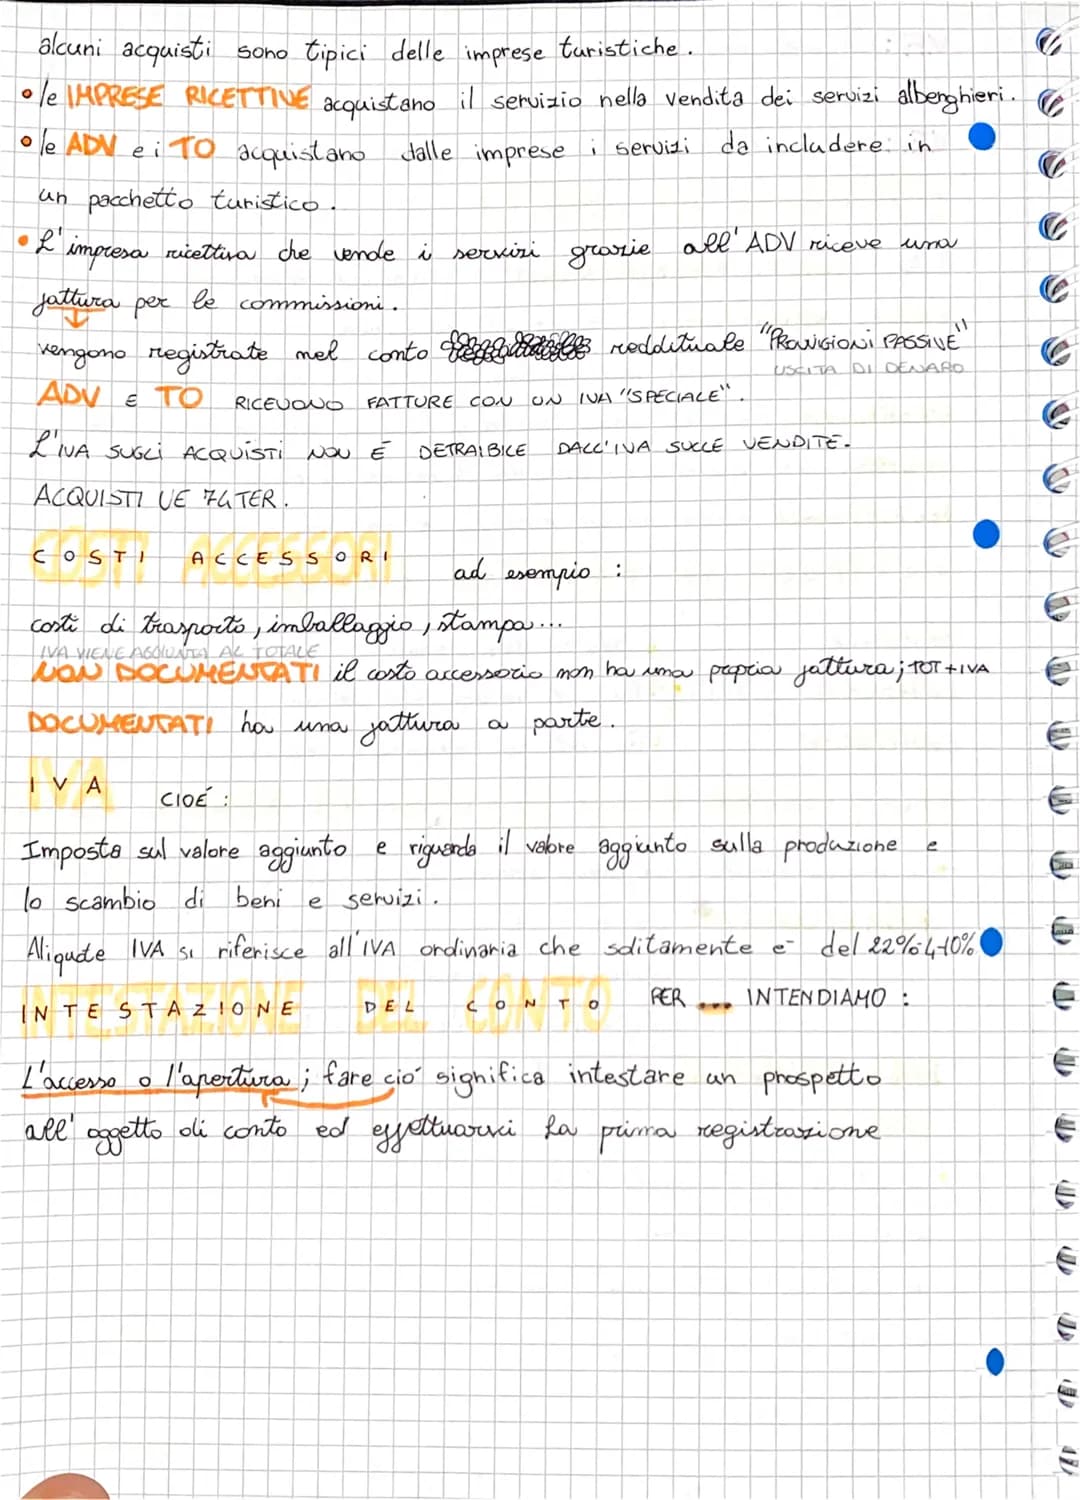 alcuni acquisti sono tipici delle imprese turistiche.
• le IMPRESE RICETTIVE acquistano il servizio nella vendita dei servizi alberghieri.
• le ADV e i TO acquistano dalle imprese i servizi da includere in
un pacchetto turistico.
• L'impresa ricettiva che vende i servizi grazie all'ADV riceve una
fattura per le commissioni.
vengono registrate nel conto reddituale "PROVIGIONI PASSIVE"
USCITA DI DENARO
ADV E TO RICEVONO FATTURE CON UN IVA "SPECIALE".
L'IVA SUGLI ACQUISTI NON É DETRAIBILE DALL'IVA SULLE VENDITE.
ACQUISTI UE 74TER.
COSTI ACCESSORI ad esempio :
costi di trasporto, imballaggio, stampa...
IVA VIENE AGGIUNTA AL TOTALE
NON DOCUMENTATI il costo accessorio non ha una propria fattura; TOT+IVA
DOCUMENTATI ha una fattura a parte.
IVA CIOÉ :
Imposta sul valore aggiunto e riguarda il valore aggiunto sulla produzione e
lo scambio di beni e servizi.
Aliquote IVA si riferisce all'IVA ordinaria che solitamente e- del 22% 4-10%
INTESTAZIONE DEL CONTO PER ... INTENDIAMO :
L'accesso o l'apertura ; fare ció significa intestare un prospetto
all'oggetto di conto ed effettuarvi la prima registrazione